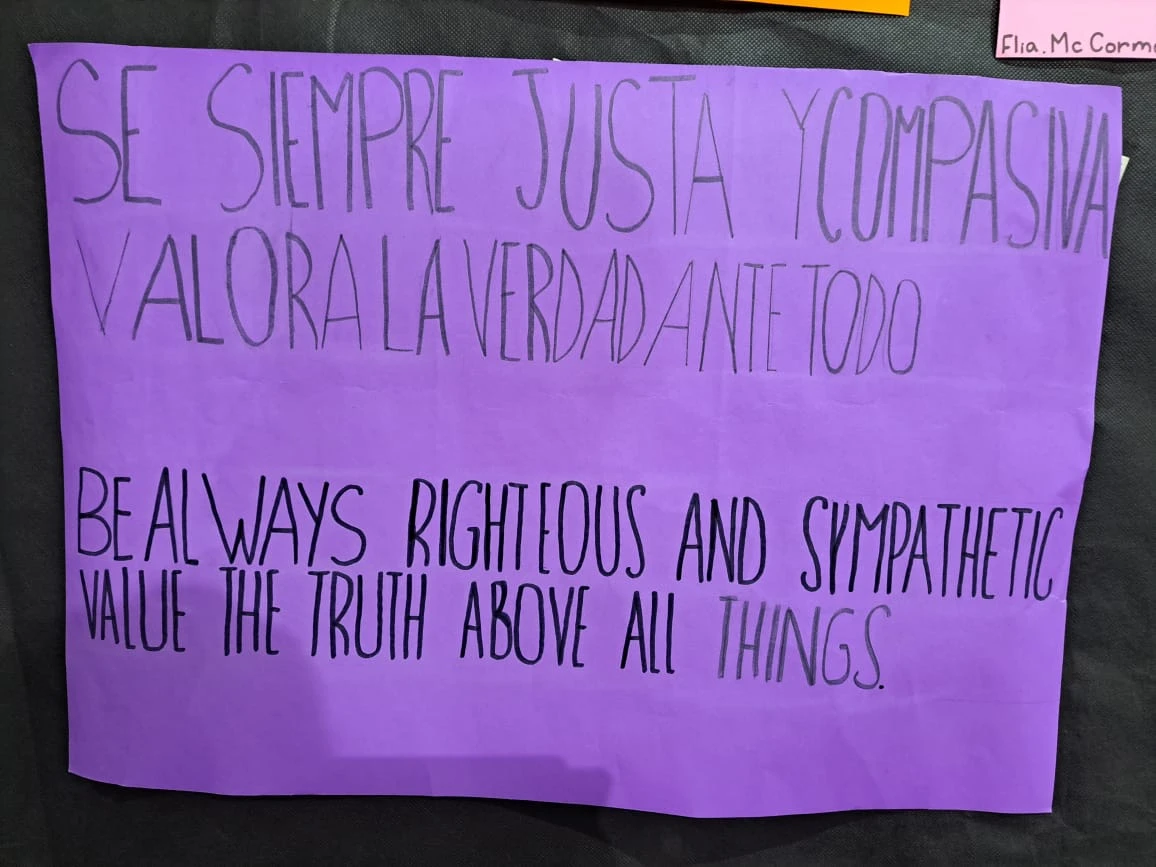 Flia. Mc Corm
SE SIEMPRE JUSTA Y COMPASIVA
VALORA LA VERDAD ANTE TODO
BE ALWAYS RIGHTEOUS AND SYMPATHETIC
VALUE THE TRUTH ABOVE ALL THINGS.